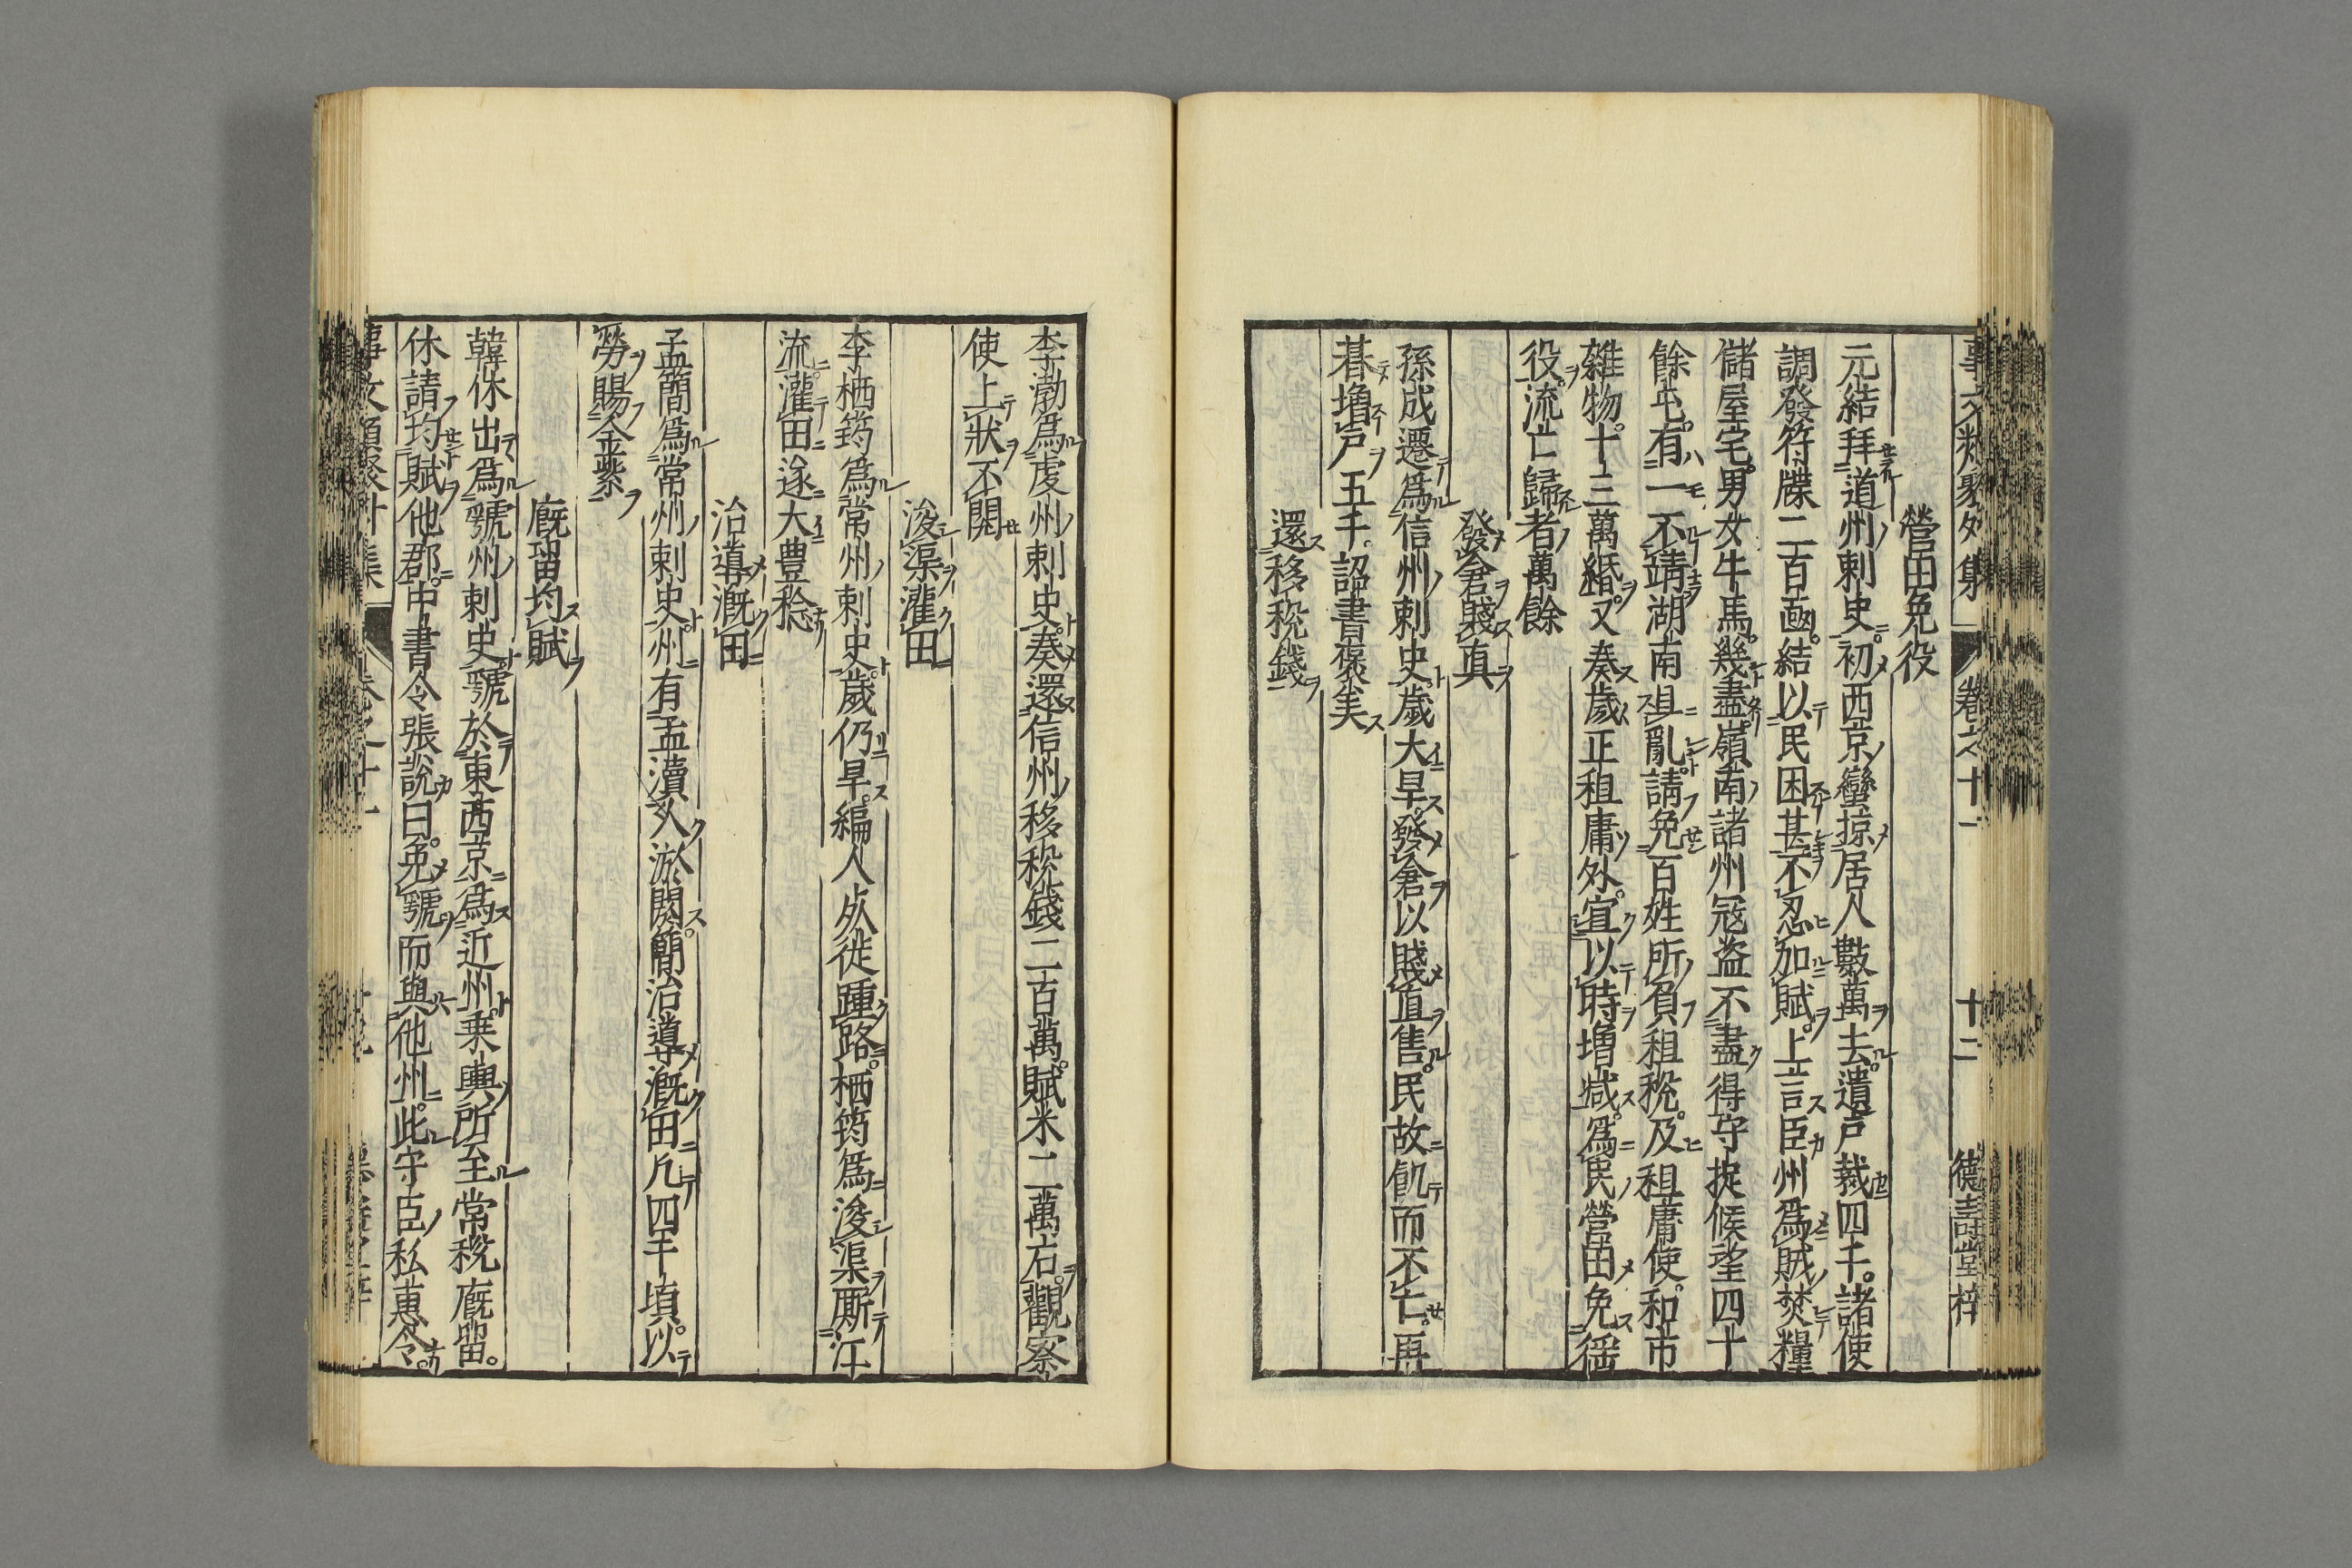 事文類聚外集 卷之十一 十二 德壽堂梓
營田免役
元結拜道州刺史初西京蠻掠居人數萬去遺戸裁四千諸使
調發符牒二百函結以民困甚不忍加賦上言臣州爲賊焚糧
儲屋宅男女牛馬幾盡嶺南諸州冦盗不盡得守捉候望四十
餘屯有一不靖湖南且亂請免百姓所負租稅及租庸使和市
雜物十三萬緡又奏歲正租庸外宜以時増减爲民營田免徭
役流亡歸者萬餘
發倉賤直
孫成遷爲信州刺史歲大旱發倉以賤直售民故飢而不亡再
朞増戸五千詔書褒美
還移稅錢
李渤爲虔州刺史奏還信州移稅錢二百萬賦米二萬石觀察
使上狀不閱
浚渠灌田
李栖筠爲常州刺史歲仍旱編人死徙踵路栖筠爲浚渠厮江
流灌田遂大豊稔
治導漑田
孟簡爲常州刺史州有孟瀆久淤閼簡治導漑田凡四千頃以
勞賜金紫
廐畱均賦
韓休出爲虢州刺史虢於東西京爲近州乗輿所至常稅廐畱
休請均賦他郡中書令張說曰免虢而與他州此守臣ノ私惠令